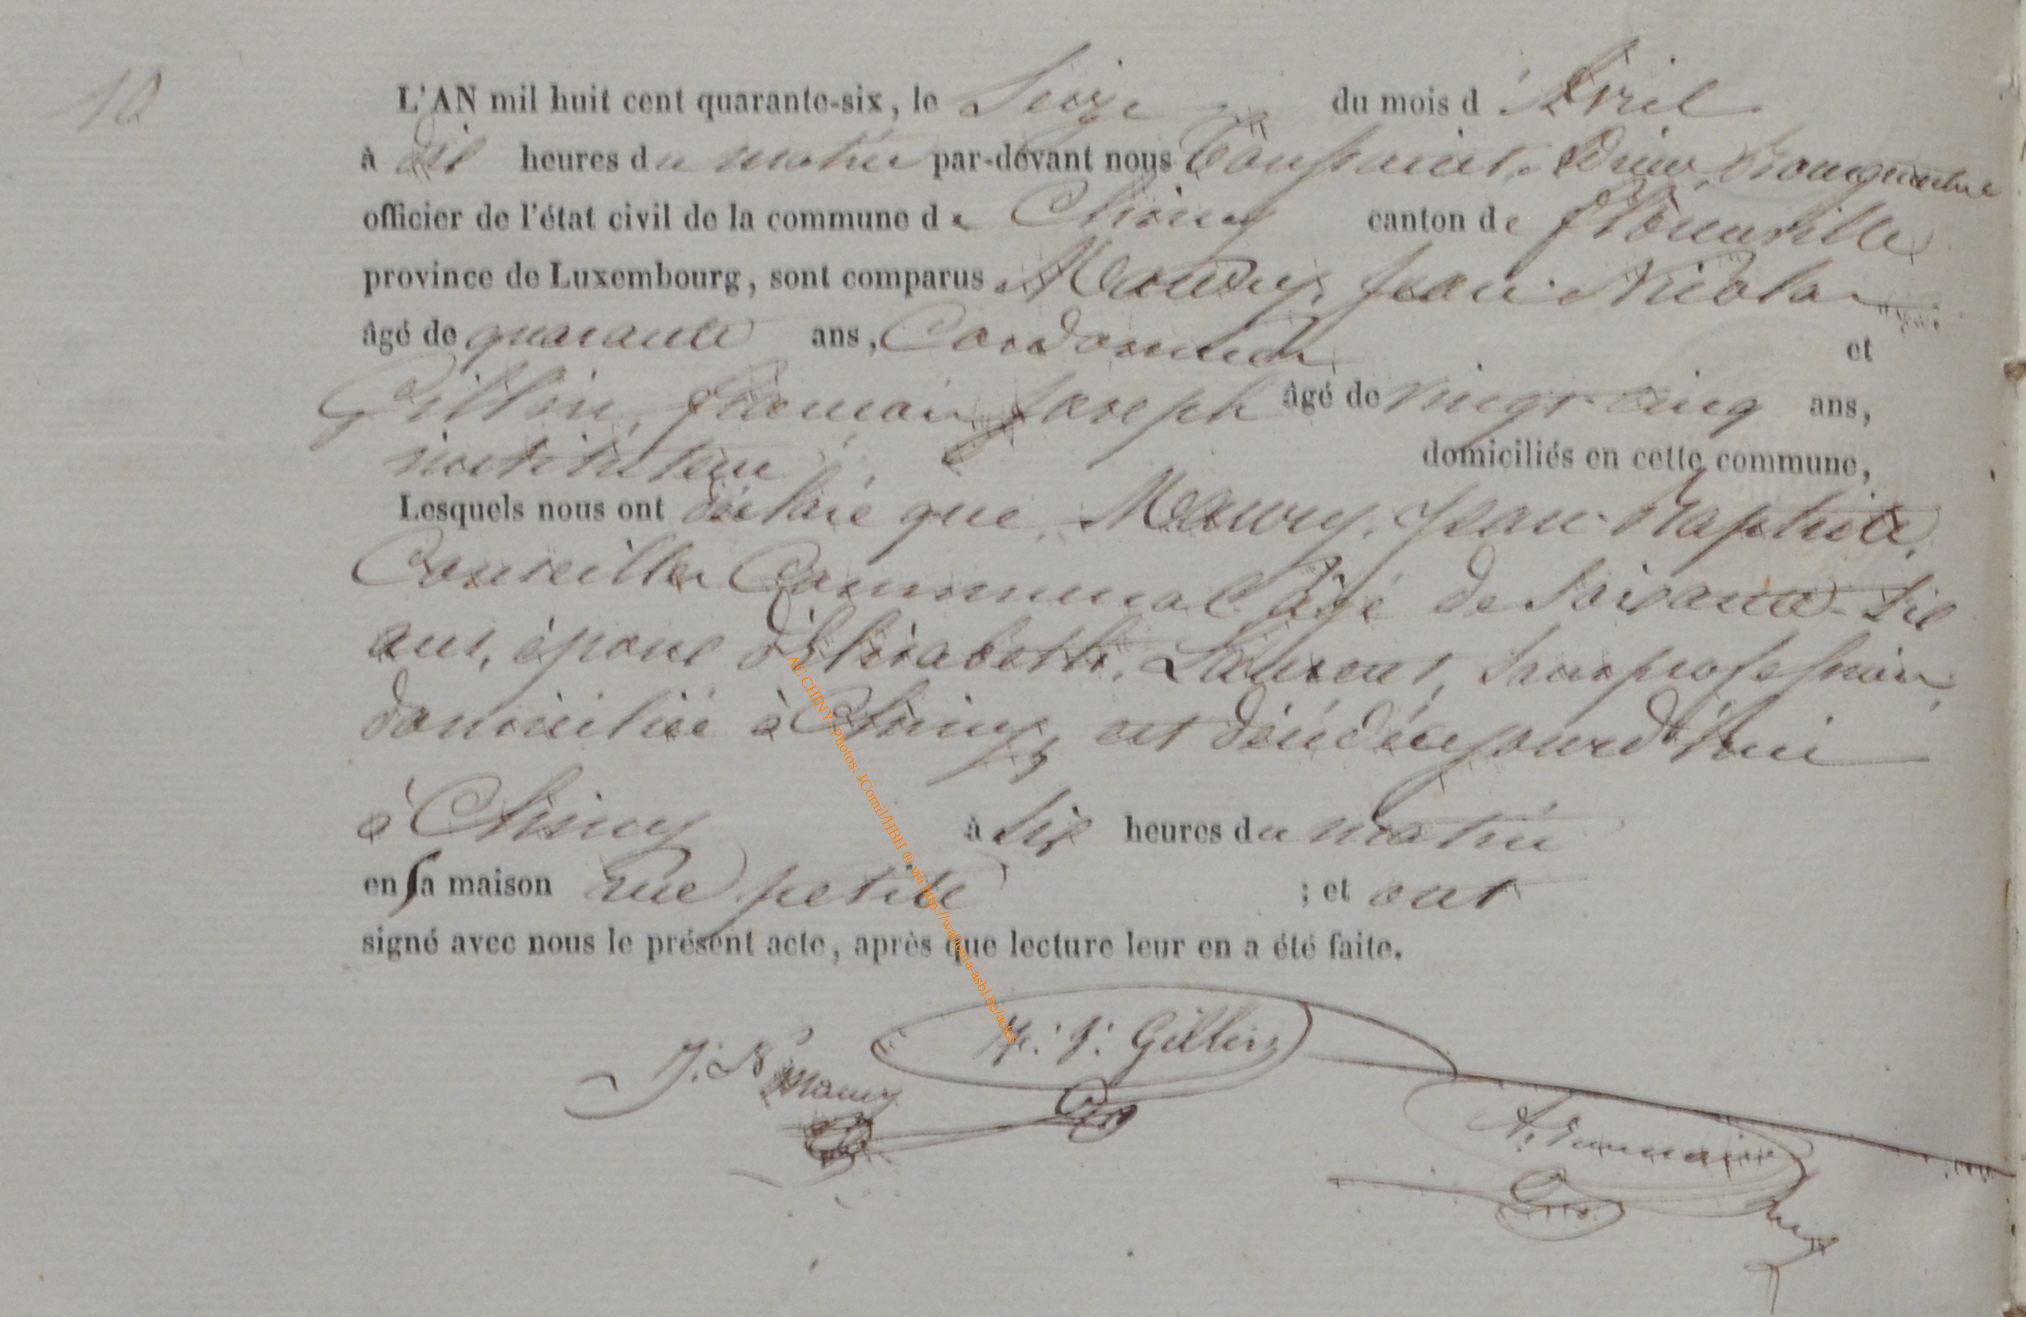 10
L'AN mil huit cent quarante-six, le Seize du mois d'Avril
à dix heures du matin par-devant nous Toussaint, Adrien, Bourguemestre
officier de l'état civil de la commune de Chiny canton de florenville
province de Luxembourg, sont comparus Maury, Jean Nicolas
âgé de quarante ans, Cordonnier et
Gillin, françois Joseph âgé de vingt-cinq ans,
instituteur domiciliés en cette commune,
Lesquels nous ont déclaré que, Maury, Jean Baptiste,
Conseiller Communal âgé de soixante-six
ans, époux d'Elisabeth, Laurent, sans profession,
domiciliée à Chiny, est décédé aujourd'hui
à Chiny à six heures du matin
en sa maison rue petite ; et ont
signé avec nous le présent acte, après que lecture leur en a été faite.
J. N Maury
F. J. Gillin
A. Toussaint
AC CHINY Photos JComil/HBH